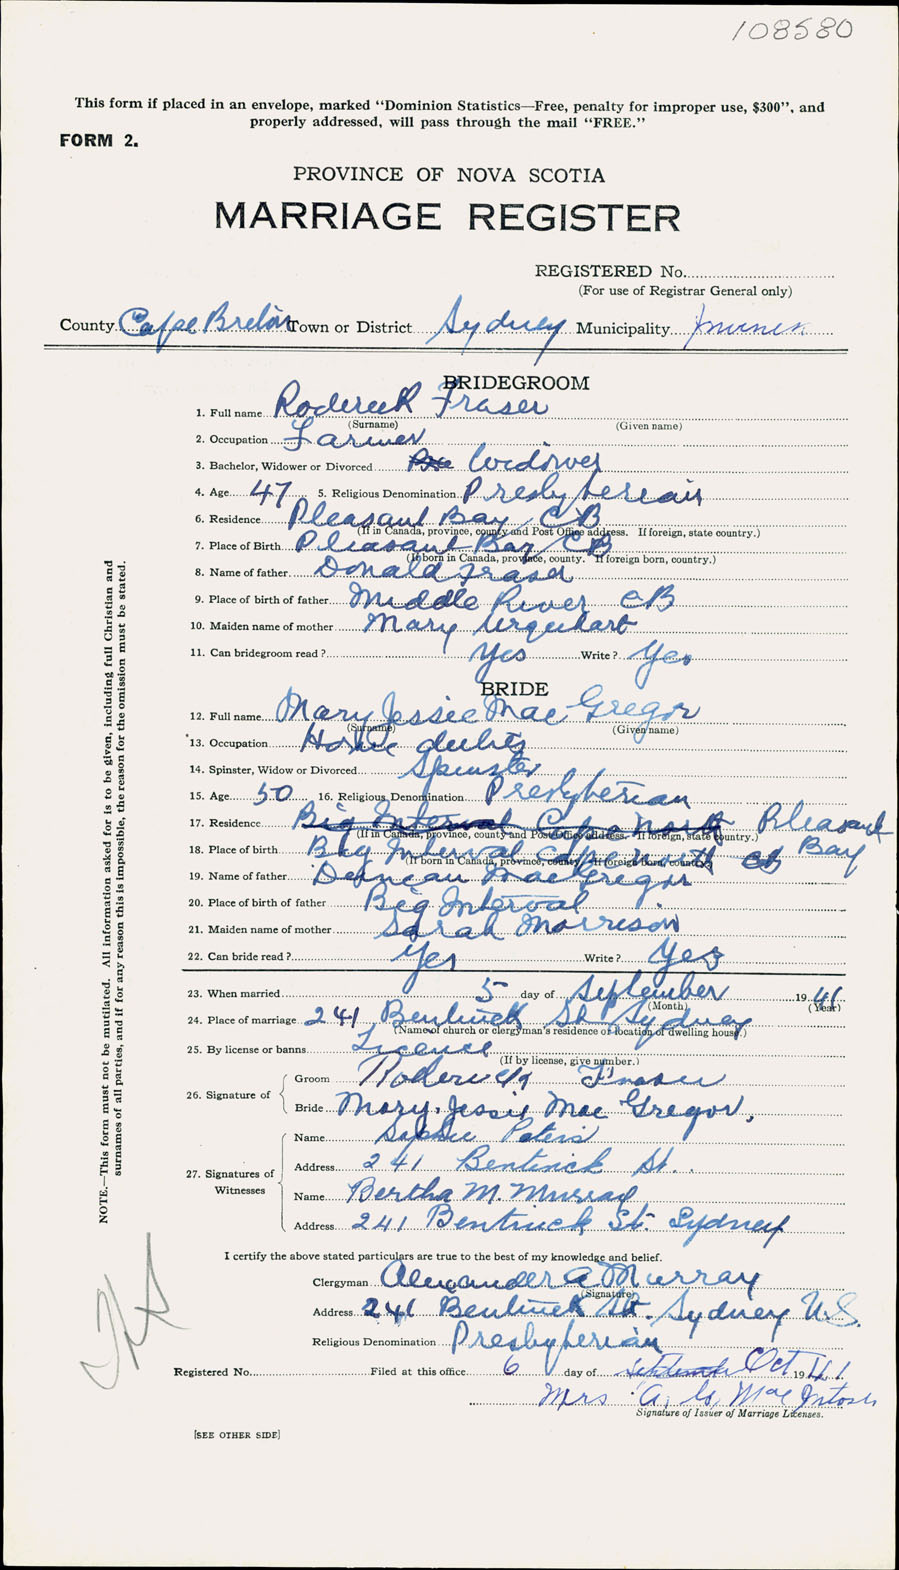 108580
This form if placed in an envelope, marked "Dominion Statistics—Free, penalty for improper use, $300", and
properly addressed, will pass through the mail "FREE."
FORM 2.
PROVINCE OF NOVA SCOTIA
MARRIAGE REGISTER
REGISTERED No.
(For use of Registrar General only)
County Cape Breton Town or District Sydney Municipality
BRIDEGROOM
1. Full name Roderick Fraser
(Surname) (Given name)
2. Occupation Farmer
3. Bachelor, Widower or Divorced Widower
4. Age 47 5. Religious Denomination Presbyterian
6. Residence Pleasant Bay CB
(If in Canada, province, county and Post Office address. If foreign, state country.)
7. Place of Birth Pleasant Bay CB
(If born in Canada, province, county. If foreign born, country.)
8. Name of father Donald Fraser
9. Place of birth of father Middle River CB
10. Maiden name of mother Mary Urquhart
11. Can bridegroom read? Yes Write? Yes
BRIDE
12. Full name Mary Jessie Mac Gregor
(Surname) (Given name)
13. Occupation Home duties
14. Spinster, Widow or Divorced Spinster
15. Age 50 16. Religious Denomination Presbyterian
17. Residence Big Interval Cape North Pleasant Bay
(If in Canada, province, county and Post Office address. If foreign, state country.)
18. Place of birth Big Interval Cape North CB
(If born in Canada, province, county. If foreign born, country)
19. Name of father Duncan MacGregor
20. Place of birth of father Big Interval
21. Maiden name of mother Sarah Morrison
22. Can bride read? Yes Write? Yes
23. When married 5 day of September 1941
(Month) (Year)
24. Place of marriage 241 Bentinck St Sydney
(Name of church or clergyman's residence or location of dwelling house.)
25. By license or banns Licence
(If by license, give number.)
26. Signature of
Groom Roderick Fraser
Bride Mary Jessie Mac Gregor,
27. Signatures of Witnesses
Name Sophie Peters
Address 241 Bentinck St.
Name Bertha M. Murray
Address 241 Bentinck St. Sydney
I certify the above stated particulars are true to the best of my knowledge and belief.
Clergyman Alexander A Murray
(Signature)
Address 241 Bentinck St. Sydney N.S.
Religious Denomination Presbyterian
Registered No. Filed at this office 6 day of September Oct 1941
Mrs. A. G. MacIntosh
Signature of Issuer of Marriage Licenses.
[SEE OTHER SIDE]
NOTE.—This form must not be mutilated. All information asked for is to be given, including full Christian and
surnames of all parties, and if for any reason this is impossible, the reason for the omission must be stated.